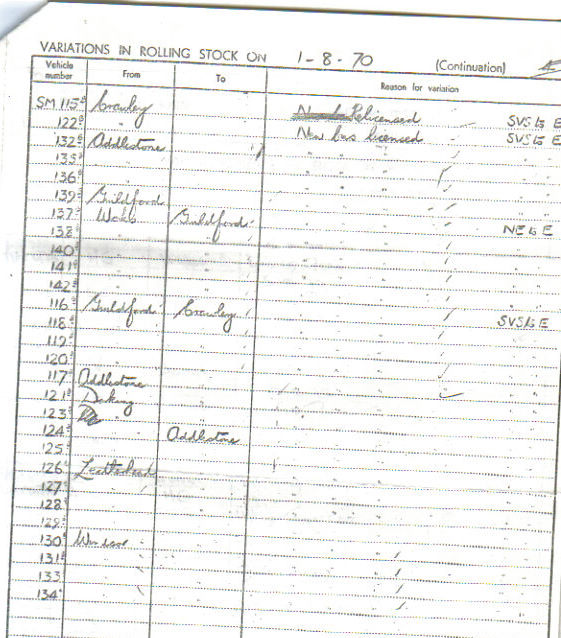 VARIATIONS IN ROLLING STOCK ON 1-8-70 (Continuation)
Vehicle number From To Reason for variation
SM 115 Crawley Relicensed SVS to E
122 " New bus licensed SVS to E
132 Addlestone " " " " "
135 " " " " " "
136 " " " " " "
139 Guildford " " " " "
137 Works Guildford " " " NE to E
138 " " " " " " "
140 " " " " " " "
141 " " " " " " "
142 " " " " " " "
116 Guildford Crawley " " " SVS to E
118 " " " " " " "
119 " " " " " " "
120 " " " " " " "
117 Addlestone " " " " " "
121 Dorking " " " " " "
123 " " " " " "
124 " Addlestone " " " " "
125 " " " " " " "
126 Leatherhead " " " " " "
127 " " " " " " "
128 " " " " " " "
129 " " " " " " "
130 Windsor " " " " " "
131 " " " " " " "
133 " " " " " " "
134 " " " " " " "